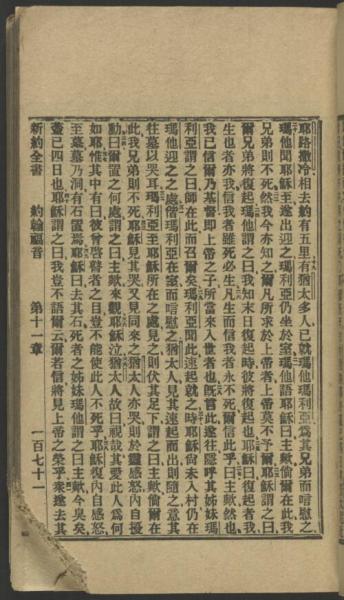 耶路撒冷相去約有五里有猶太多人已就瑪他瑪利亞爲其兄弟而唁慰之
瑪他聞耶穌至遂出迎之瑪利亞仍坐於室瑪他語耶穌曰主歟倘爾在此我
兄弟則不死然我今亦知之爾凡所求於上帝者上帝莫不予爾耶穌謂之曰
爾兄弟將復起瑪他謂之曰我知末日復起時彼將復起也耶穌曰復起者我
生也者亦我信我者雖死必生凡生而信我者永不死爾信此乎曰主歟然也
我已信爾乃基督即上帝之子所當來入世者也既言此遂往隱呼其姊妹瑪
利亞謂之曰師在此而召爾矣瑪利亞聞此速起就之時耶穌尙未入村仍在
瑪他迎之之處偕瑪利亞在室而唁慰之猶太人見其速起而出則隨之意其
往墓以哭耳瑪利亞至耶穌所在之處見之則伏其足下謂之曰主歟倘爾在
此我兄弟則不死耶穌見其哭又見同來之猶太人亦哭則於靈感怒內自擾
動曰爾置之何處謂之曰主歟來觀耶穌泣猶太人故曰視哉其愛此人爲何
如耶惟其中有曰彼曾啓瞽者之目豈不能使此人不死乎耶穌復內自感怒
至墓墓乃洞有石置焉耶穌曰去其石死者之姊妹瑪他謂之曰主歟今臭矣
蓋已四日也耶穌謂之曰我豈不語爾云爾若信將見上帝之榮乎衆遂去其
新約全書 約翰福音 第十一章 一百七十一